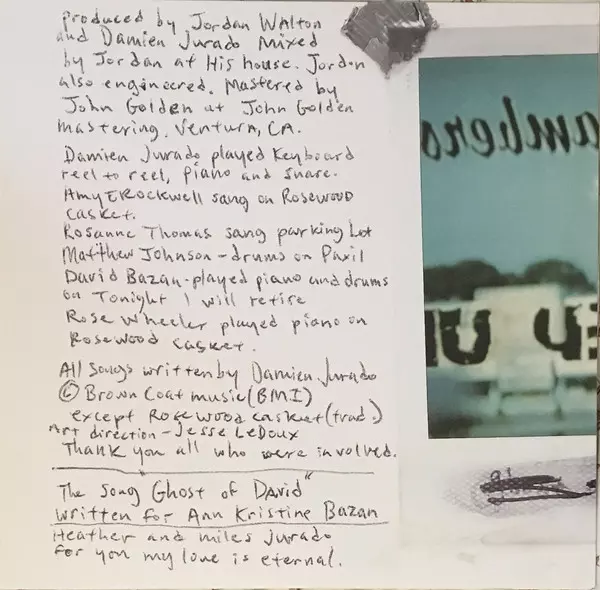 produced by Jordan Walton
and Damien Jurado Mixed
by Jordan at His house. Jordan
also engineered. Mastered by
John Golden at John Golden
mastering. Ventura, CA.
Damien Jurado played Keyboard
reel to reel, piano and snare.
Amy E Rockwell sang on Rosewood
casket.
Rosanne Thomas sang parking Lot
Matthew Johnson - drums on Paxil
David Bazan - played piano and drums
on Tonight I will retire
Rose Wheeler played piano on
Rosewood casket.
All songs written by Damien Jurado
© Brown Coat music (BMI)
except Rosewood casket (trad.)
Art direction - Jesse LeDoux
Thank you all who were involved.
The song Ghost of David"
written for Ann Kristine Bazan
Heather and miles Jurado
for you my love is eternal.
ambers